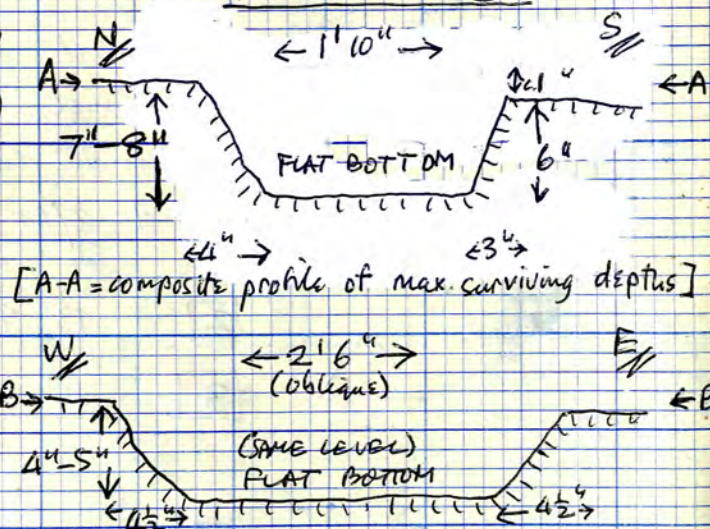 N S
← 1' 10" →
A→ <1" ←A
7"-8" FLAT BOTTOM 6"
←4"→ ←3"→
[A-A = composite profile of max. surviving depths]
W E
← 2' 6" →
(oblique)
B→ ←B
4"-5" (SAME LEVEL)
FLAT BOTTOM
←4½"→ ←4½"→